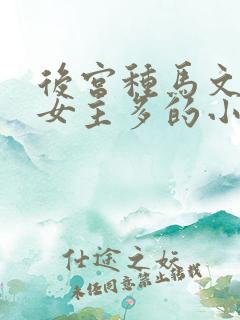 後宮種馬文
女主多的小
仕途之妖
未经同意禁止转载